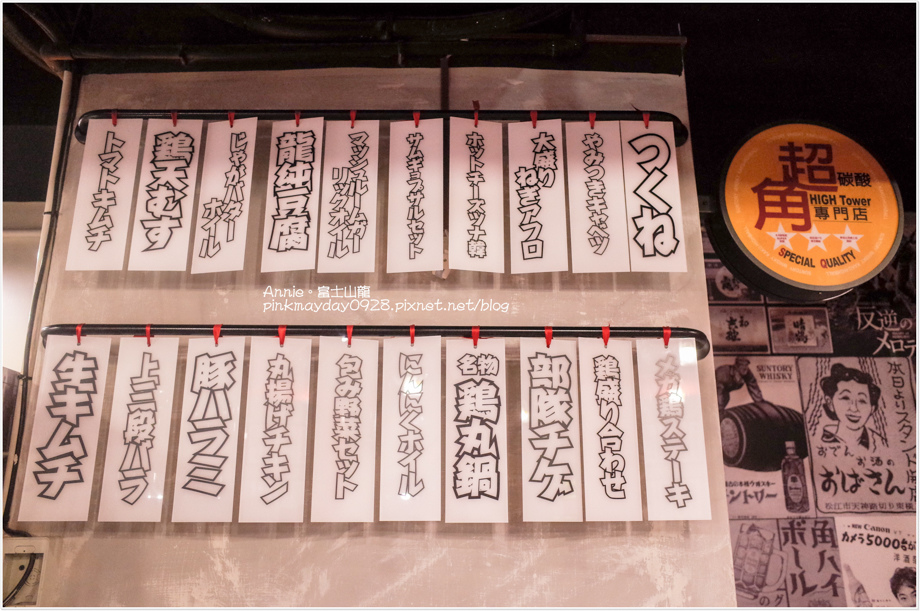 つくね
やみつきキャベツ
大盛り
ねぎアフロ
ホットチーズツナ韓
サムギョプサルセット
マッシュルームガー
リックオイル
龍純豆腐
じゃがバター
ホイル
鶏天むす
トマトキムチ
メガ鶏ステーキ
鶏盛り合わせ
部隊チゲ
名物
鶏丸鍋
にんにくホイル
包み野菜セット
丸揚げチキン
豚ハラミ
上三段バラ
生キムチ
Annie。富士山龍
pinkmayday0928.pixnet.net/blog
超
角
碳酸
HIGH Tower
專門店
SPECIAL QUALITY
反逆の
メロデ
SUNTORY
WHISKY
ントリー
本日よりスタン
おでんお酒の
おばさん
角ハイ
ボール
Canon
カメラ5000台